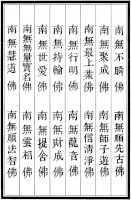 南無不瞬佛　南無順先古佛
南無聚成佛　南無師子遊佛
南無最上業佛　南無信清淨佛
南無行明佛　南無龍音佛
南無持輪佛　南無財成佛
南無世愛佛　南無提舍佛
南無無量寶名佛　南無雲相佛
南無慧道佛　南無順法智佛